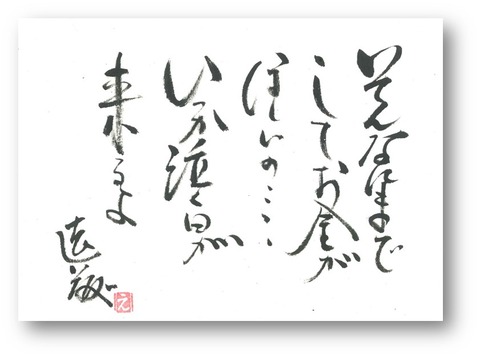 そんなにまで
してお金が
ほしいの・・・
いつか泣く日が
来るよ
え